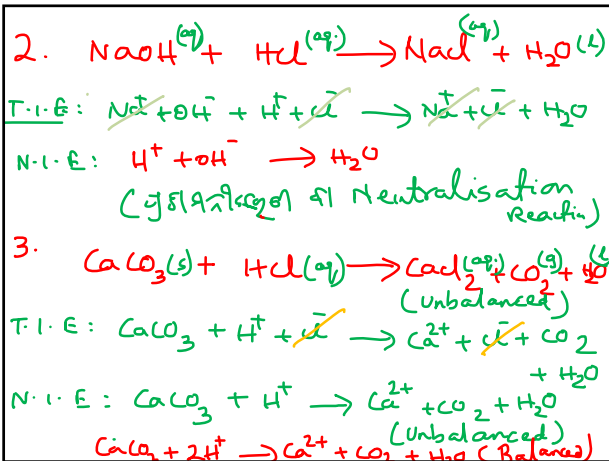 2. NaOH(aq) + HCl(aq.) → NaCl(aq) + H₂O(l)
T.I.E: Na⁺ + OH⁻ + H⁺ + Cl⁻ → Na⁺ + Cl⁻ + H₂O
N.I.E: H⁺ + OH⁻ → H₂O
Neutralisation
Reaction)
3.
CaCO₃(s) + HCl(aq) → CaCl₂(aq.) + CO₂(g) + H₂O(l)
(Unbalanced)
T.I.E: CaCO₃ + H⁺ + Cl⁻ → Ca²⁺ + Cl⁻ + CO₂
+ H₂O
N.I.E: CaCO₃ + H⁺ → Ca²⁺ + CO₂ + H₂O
(Unbalanced)
CaCO₃ + 2H⁺ → Ca²⁺ + CO₂ + H₂O (Balanced)